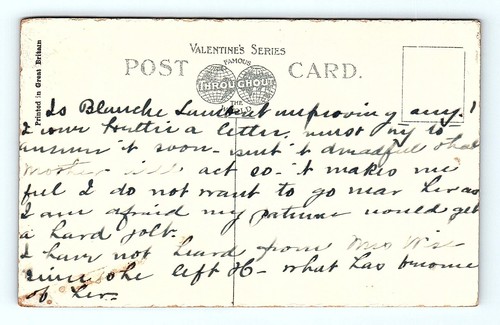 VALENTINE'S SERIES
FAMOUS
POST CARD.
THROUGHOUT
THE
WORLD
Printed in Great Britain
Is Blanche improving any?
I owe a letter, must try to
answer it soon - isn't it dreadful that
Mother act so - it makes me
feel I do not want to go near her as
I am afraid my patience would get
a hard jolt.
I have not heard from Mrs
since she left H - what has become
of her -